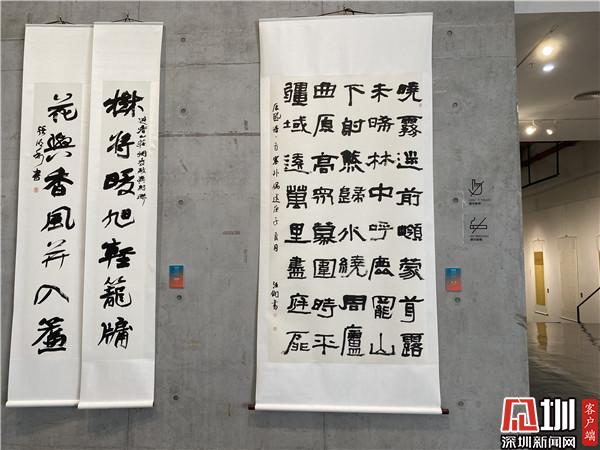 樹將暖旭輕籠牖
花與香風并入簾
曉霧迷前巘蒙茸露
未晞林中呼鹿罷山
下射熊歸水繞周廬
曲原高眾幕圍時平
疆域遠萬里盡庭
深圳新闻网
客户端